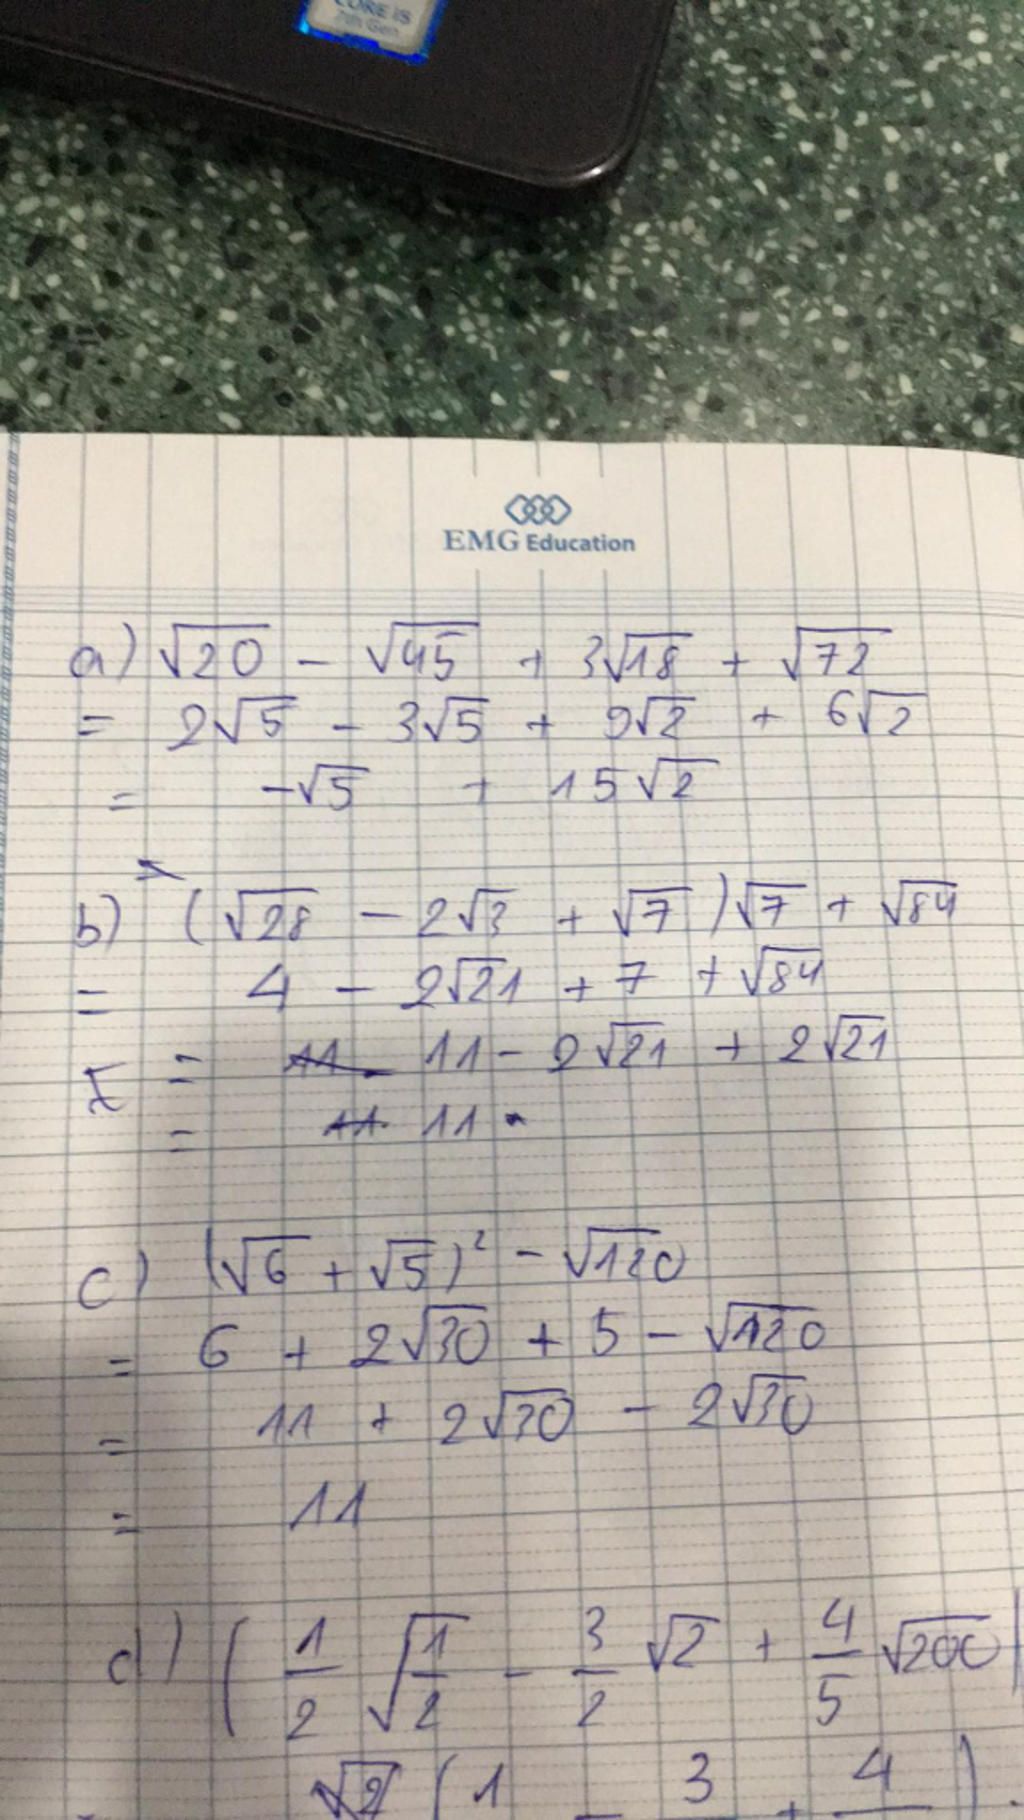 CORE i5
7th Gen
EMG Education
a) √20 - √45 + 3√18 + √72
= 2√5 - 3√5 + 9√2 + 6√2
= -√5 + 15√2
b) (√28 - 2√3 + √7)√7 + √84
= 4 - 2√21 + 7 + √84
= 11 - 2√21 + 2√21
= 11
c) (√6 + √5)² - √120
= 6 + 2√30 + 5 - √120
= 11 + 2√30 - 2√30
= 11
d) (1/2 √1/2 - 3/2 √2 + 4/5 √200)
√2 (1 - 3 + 4 )